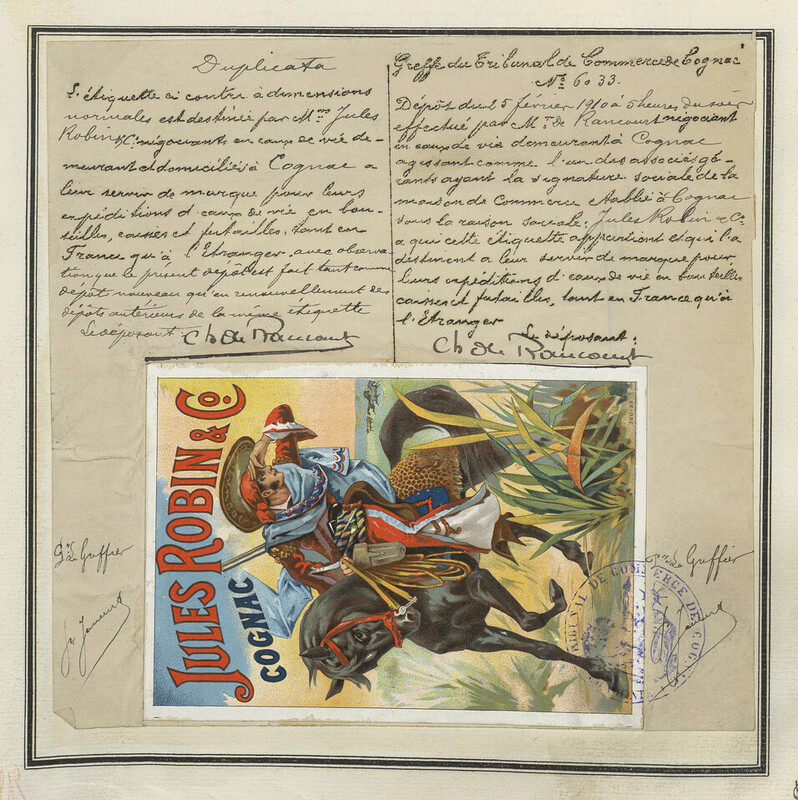 Duplicata
L'étiquette ci contre à dimensions
normales est destinée par M.rs Jules
Robin & Cº négociants en eaux de vie de-
meurant et domiciliés à Cognac a
leur servir de marque pour leurs
expéditions d'eaux de vie en bou-
teilles, caisses et futailles, tant en
France qu'à l'Etranger. avec observa
tion que le présent dépôt est fait tant comme
dépôt nouveau qu'en renouvellement des
dépôts antérieurs de la même étiquette
Le déposant:
Ch de Rancourt
Greffe du Tribunal de Commerce de Cognac
Nº 6033.
Dépôt du 25 février 1910 à 5 heures du soir
effectué par M.r de Rancourt négociant
en eaux de vie demeurant à Cognac
agissant comme l'un des associés gé-
rants ayant la signature sociale de la
maison de Commerce établie à Cognac
sous la raison sociale: Jules Robin & Cº
a qui cette étiquette appartient et qui l'a
destinent a leur servir de marque pour
leurs expéditions d'eaux de vie en bouteilles
caisses et futailles, tant en France qu'à
l'Etranger
Le déposant:
Ch de Rancourt
JULES ROBIN & Co.
COGNAC
Greffier
Greffier
TRIBUNAL DE COMMERCE DE COGNAC